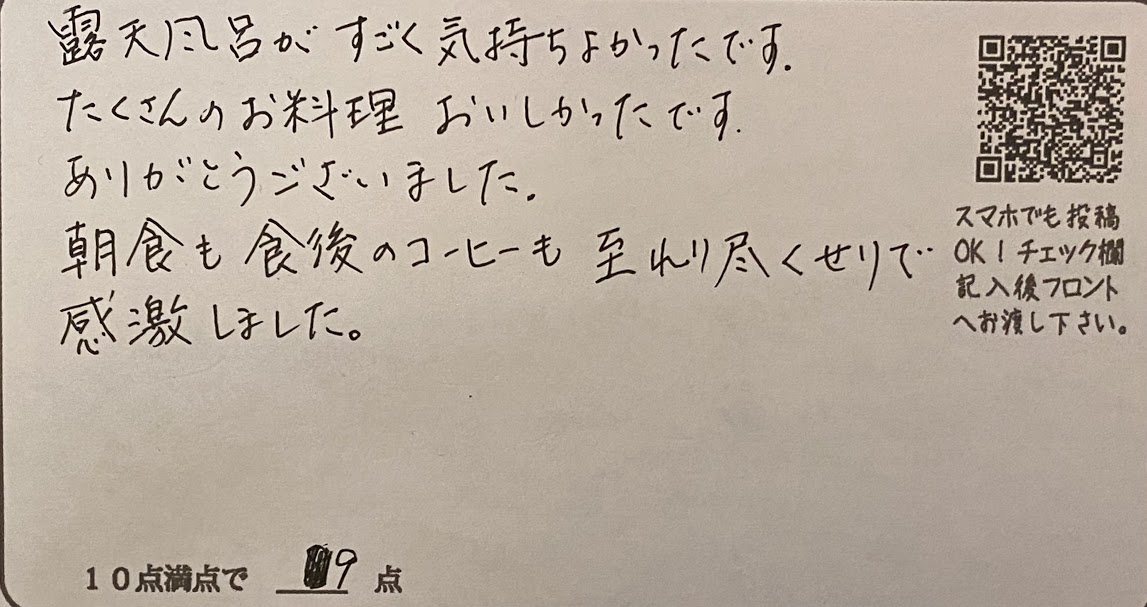 露天風呂がすごく気持ちよかったです.
たくさんのお料理 おいしかったです.
ありがとうございました.
朝食も食後のコーヒーも 至れり尽くせりで
感激しました。
スマホでも投稿
OK!チェック欄
記入後フロント
へお渡し下さい。
10点満点で 9 点